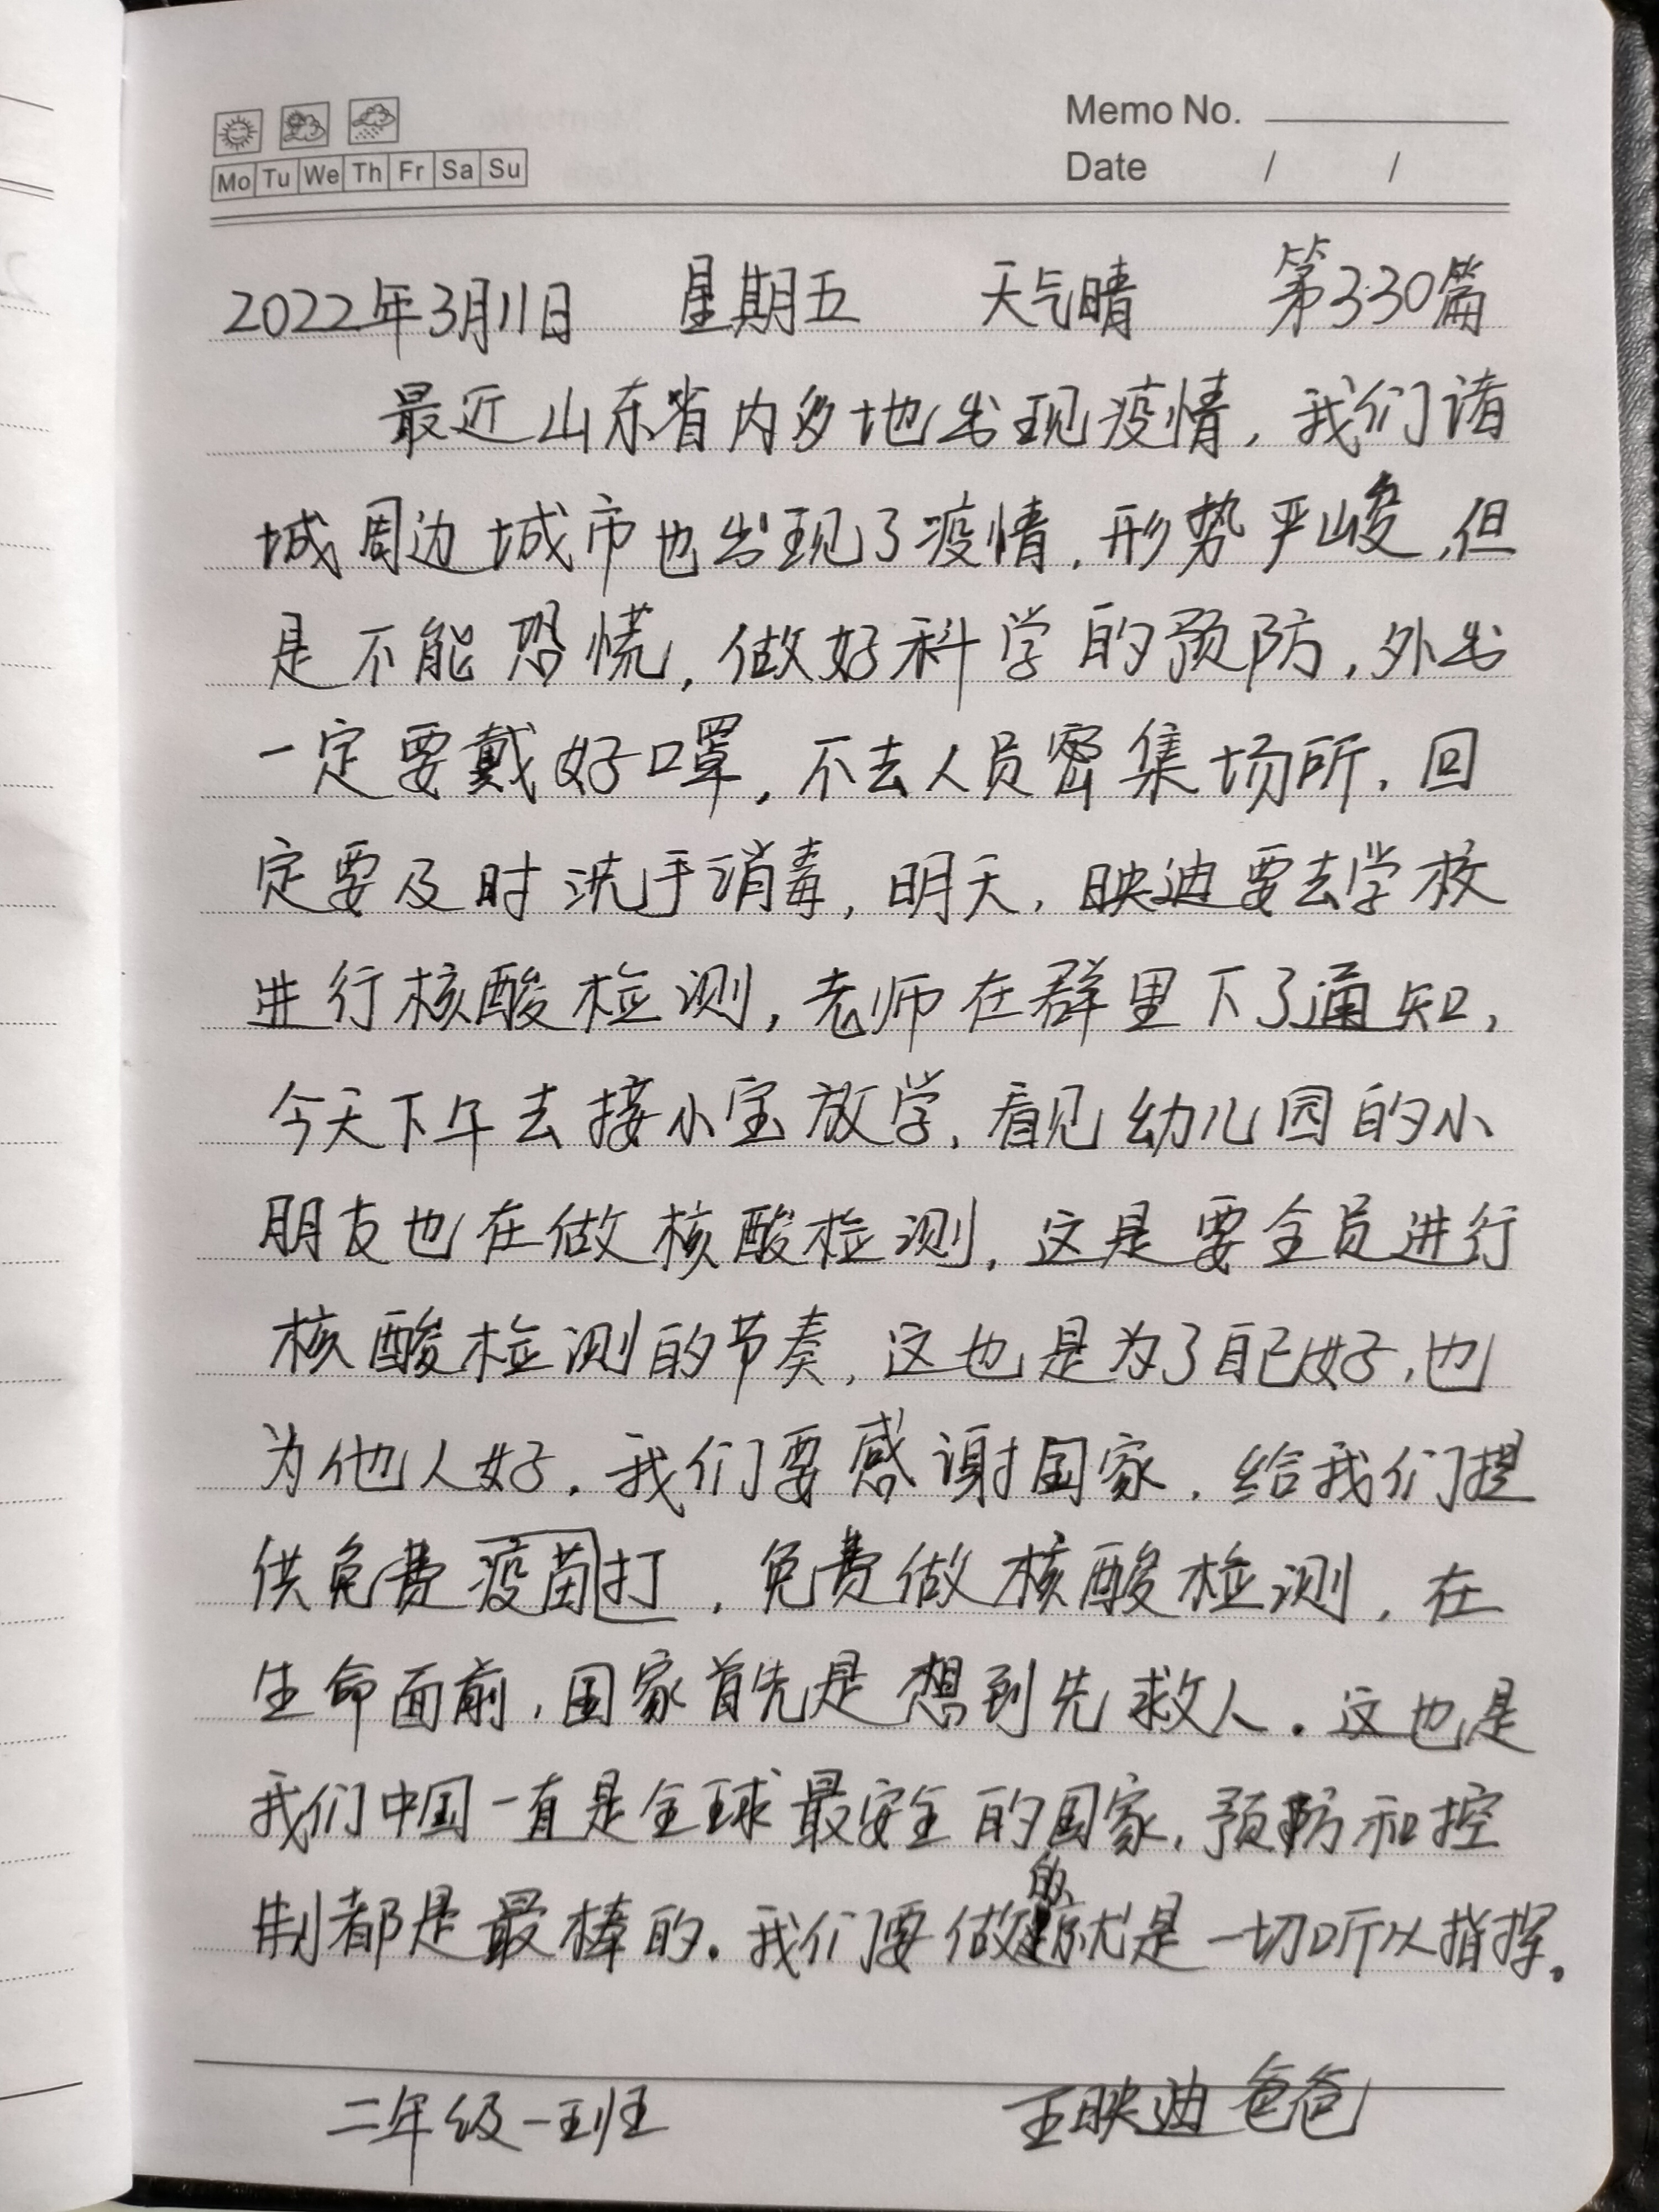 Memo No.
Mo Tu We Th Fr Sa Su
Date / /
2022年3月11日 星期五 天气晴 第330篇
最近山东省内多地出现疫情,我们诸
城周边城市也出现了疫情,形势严峻,但
是不能恐慌,做好科学的预防,外出
一定要戴好口罩,不去人员密集场所,回
定要及时洗手消毒,明天,映迪要去学校
进行核酸检测,老师在群里下了通知,
今天下午去接小宝放学,看见幼儿园的小
朋友也在做核酸检测,这是要全员进行
核酸检测的节奏,这也是为了自己好,也
为他人好,我们要感谢国家,给我们提
供免费疫苗打,免费做核酸检测,在
生命面前,国家首先是想到先救人.这也是
我们中国一直是全球最安全的国家,预防和控
制都是最棒的.我们要做的就是一切听从指挥.
二年级一班 王映迪爸爸